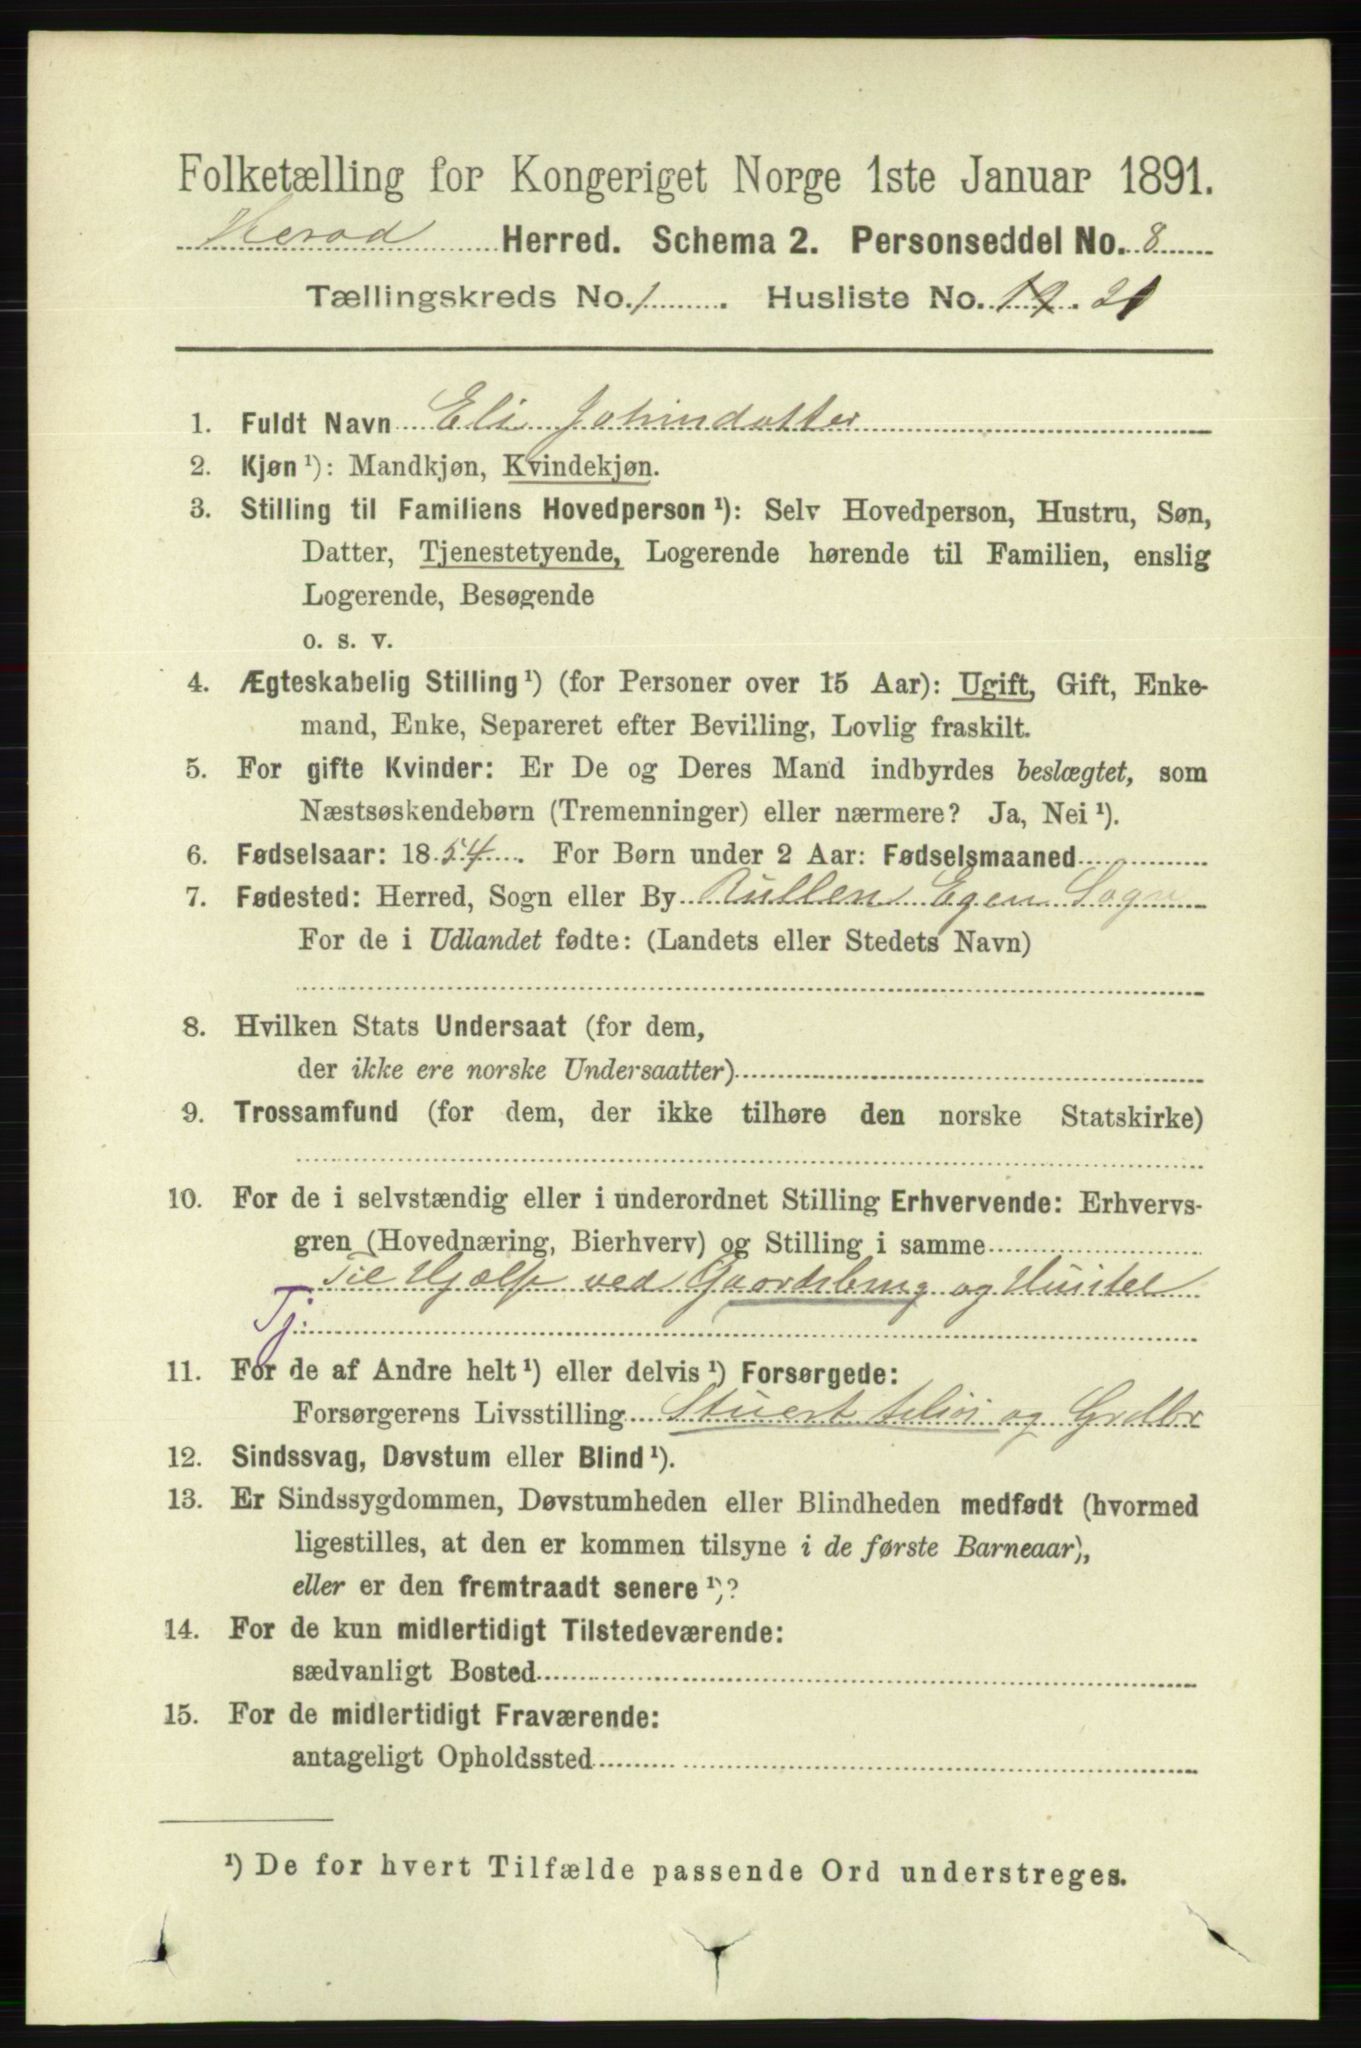 Folketælling for Kongeriget Norge 1ste Januar 1891.
Herad Herred. Schema 2. Personseddel No. 8
Tællingskreds No. 1. Husliste No. 19. 21
1. Fuldt Navn Eli Johnsdatter
2. Kjøn ¹): Mandkjøn, Kvindekjøn.
3. Stilling til Familiens Hovedperson ¹): Selv Hovedperson, Hustru, Søn,
Datter, Tjenestetyende, Logerende hørende til Familien, enslig
Logerende, Besøgende
o. s. v.
4. Ægteskabelig Stilling ¹) (for Personer over 15 Aar): Ugift, Gift, Enke-
mand, Enke, Separeret efter Bevilling, Lovlig fraskilt.
5. For gifte Kvinder: Er De og Deres Mand indbyrdes beslægtet, som
Næstsøskendebørn (Tremenninger) eller nærmere? Ja, Nei ¹).
6. Fødselsaar: 1854. For Børn under 2 Aar: Fødselsmaaned
7. Fødested: Herred, Sogn eller By Egen Sogn
For de i Udlandet fødte: (Landets eller Stedets Navn)
8. Hvilken Stats Undersaat (for dem,
der ikke ere norske Undersaatter)
9. Trossamfund (for dem, der ikke tilhøre den norske Statskirke)
10. For de i selvstændig eller i underordnet Stilling Erhvervende: Erhvervs-
gren (Hovednæring, Bierhverv) og Stilling i samme
Til Hjælp ved Gaardsbrug og Huustel
Tj:
11. For de af Andre helt ¹) eller delvis ¹) Forsørgede:
Forsørgerens Livsstilling og Grdbr
12. Sindssvag, Døvstum eller Blind ¹).
13. Er Sindssygdommen, Døvstumheden eller Blindheden medfødt (hvormed
ligestilles, at den er kommen tilsyne i de første Barneaar),
eller er den fremtraadt senere ¹)?
14. For de kun midlertidigt Tilstedeværende:
sædvanligt Bosted
15. For de midlertidigt Fraværende:
antageligt Opholdssted
¹) De for hvert Tilfælde passende Ord understreges.